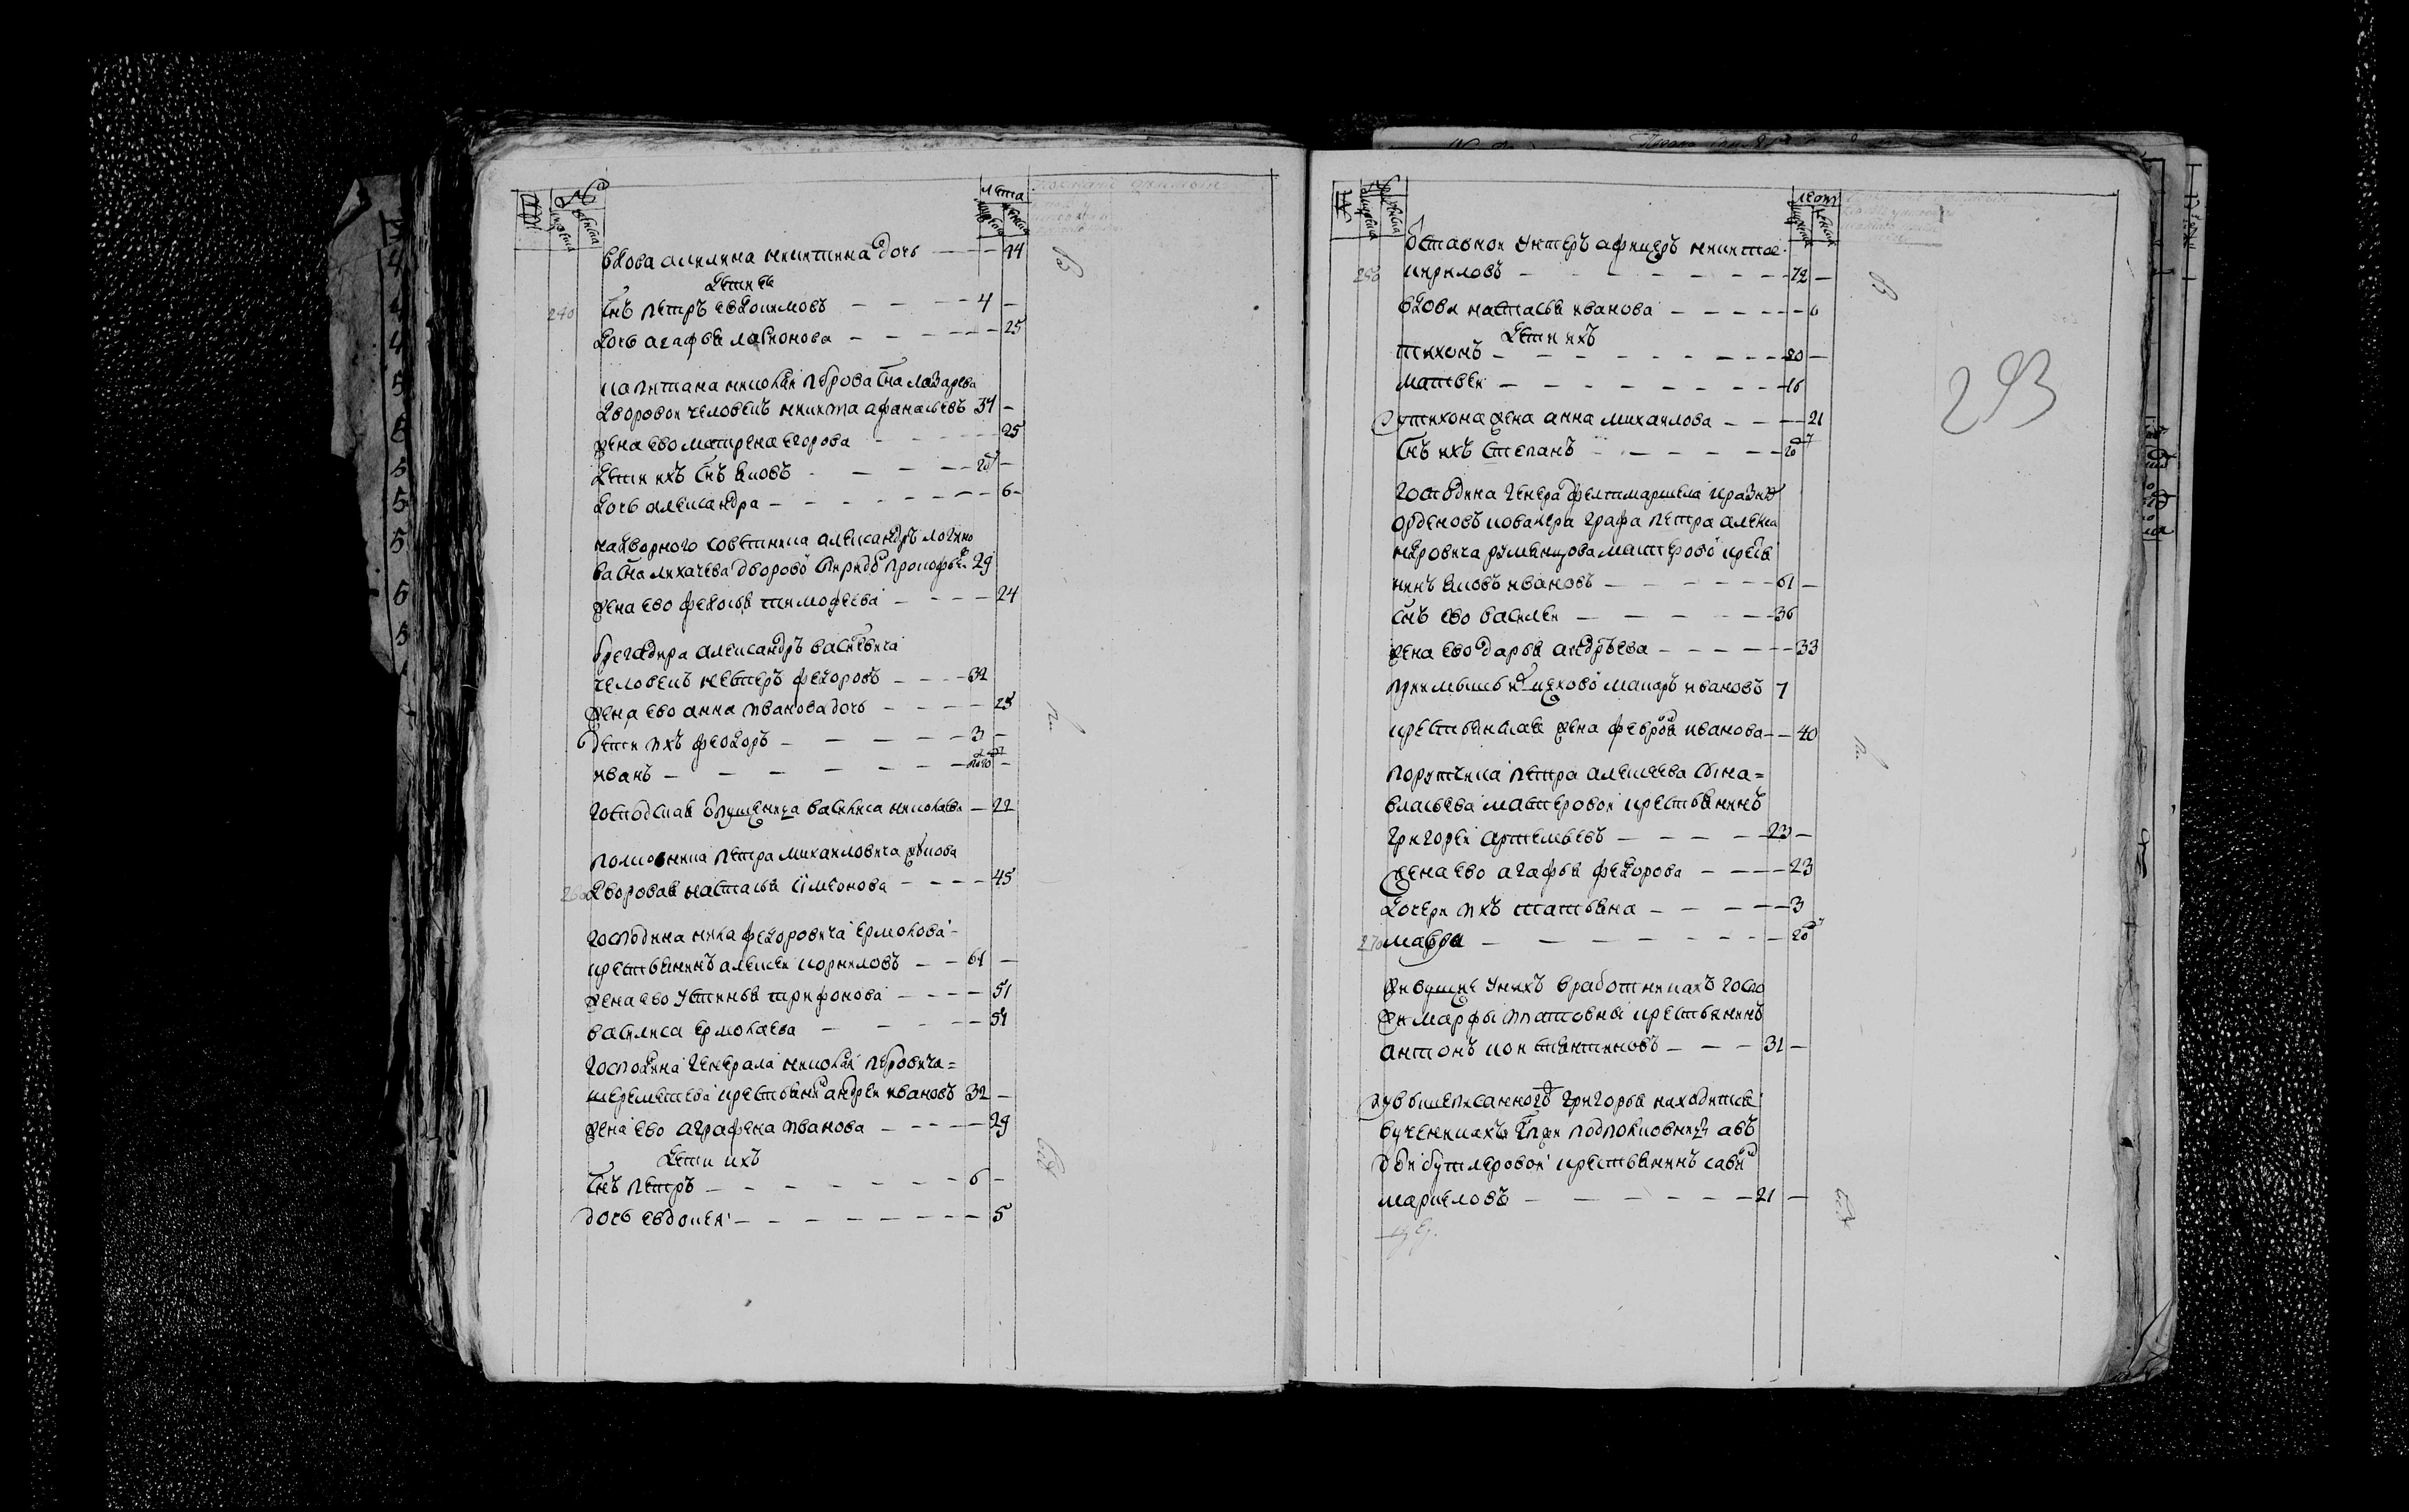 лета
вдова акилина никитина дочь — 44
дети ее
240 снъ петръ евдокимовъ — 4 —
дочь агафья ларионова — 25
капитана николая петрова сна лазарева
дворовой человекъ никита афанасьевъ 34 —
жена ево матрена егорова — 25
дети ихъ снъ яковъ —
дочь александра — 6
надворного советника александръ логино
ва сна лихачева дворовой спиридо прокофье 29
жена ево федосья тимофеева — 24
брегадира александръ василевича
человекъ нестеръ федоровъ — 32
жена ево анна иванова дочь — 25
дети ихъ феодоръ — 3 —
иванъ —
господская васи­лиса николаева — 22
полковника петра михаиловича
дворовая настасья симеонова — 45
господина федоровича ермолова
крестьянинъ алексей корниловъ — 61 —
жена ево устинья трифонова — 51
василиса ермолаева — 51
господина генерала николая петровича
шереметева крестьяни андреи ивановъ 32 —
жена ево аграфена иванова — 29
дети ихъ
снъ петръ — 6 —
дочь евдокея — 5
лет
отставной унтеръ афицеръ никита
кириловъ — 72 —
вдова настасья иванова —
дети ихъ
тихонъ — 20 —
матвеи — 16
у тихона жена анна михаилова — 21
снъ ихъ степанъ —
293
господина генера фелтмаршела и разны
орденовъ ковалера графа петра алекса
ндровича румянцова мастеровой крестья
нинъ яковъ ивановъ — 61 —
снъ ево василеи — 36
жена ево дарья андръева — 33
макаръ ивановъ 7
крестьянская жена иванова — 40
порутчика петра алексеева сына
власьева мастеровой крестьянинъ
григореи артемьевъ — 23 —
жена ево агафья федорова — 23
дочери ихъ татьяна — 3
270 мавра —
живущие у нихъ в работникахъ госпо
жи марфы платовны крестьянинъ
антонъ констянтиновъ — 31 —
у вышеписанного григорья находится
в ученикахъ г­жи подполковницы авъ
доти бутлеровой крестьянинъ сав
маркеловъ — 21 —